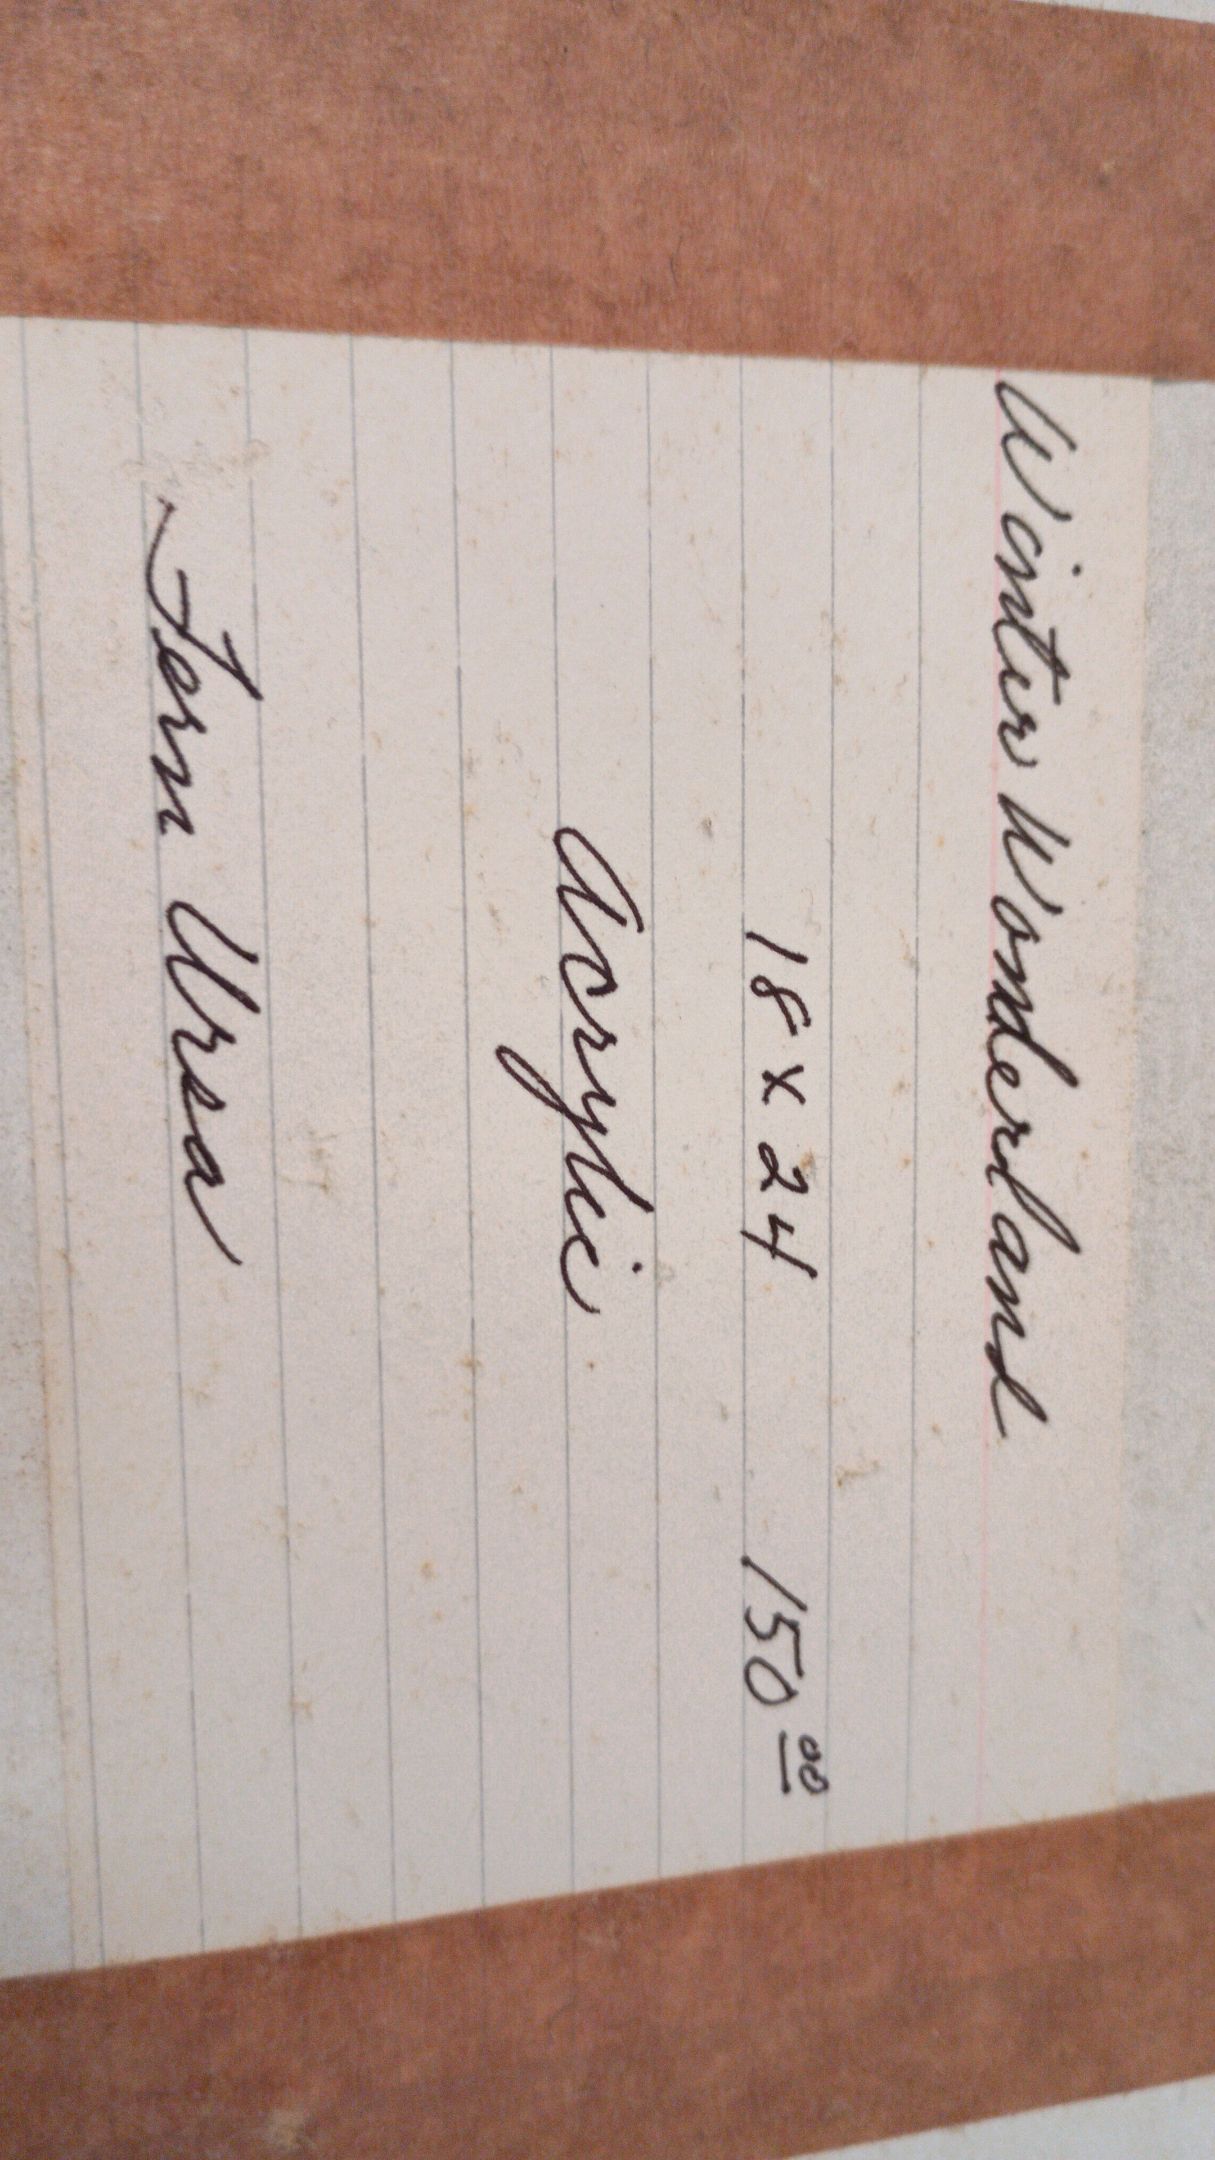 Winter Wonderland
18 x 24 150 00
Acrylic
Fern Ursa